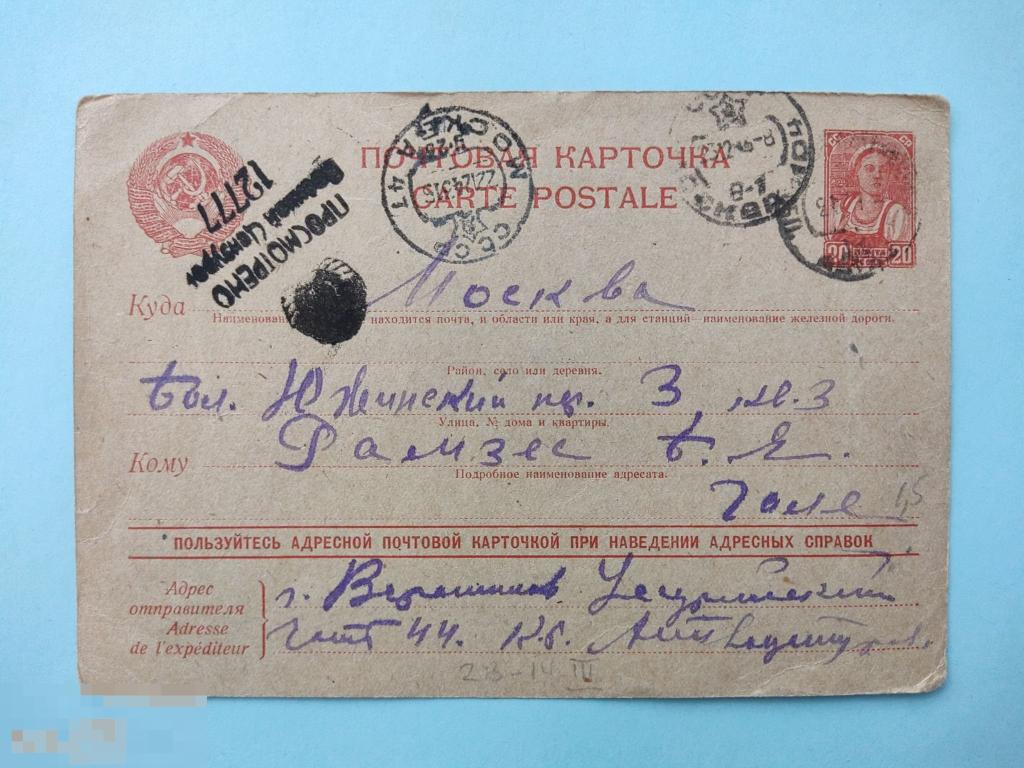 ПОЧТОВАЯ КАРТОЧКА
CARTE POSTALE
ПРОСМОТРЕНО
Военной Цензурой
12777
МОСКВА 47
СССР
20 ПОЧТА 20
Куда Москва
находится почта, и области или края, а для станций наименование железной дороги.
Район, село или деревня.
Бол. Южинский пер. 3, кв. 3
Улица, № дома и квартиры.
Кому Рамзес Б. Е.
Подробное наименование адресата.
Гале
15
ПОЛЬЗУЙТЕСЬ АДРЕСНОЙ ПОЧТОВОЙ КАРТОЧКОЙ ПРИ НАВЕДЕНИИ АДРЕСНЫХ СПРАВОК
Адрес
отправителя
Adresse
de l'expéditeur
г. Ворошилов Уссурийский
44. кв.
23-14 III